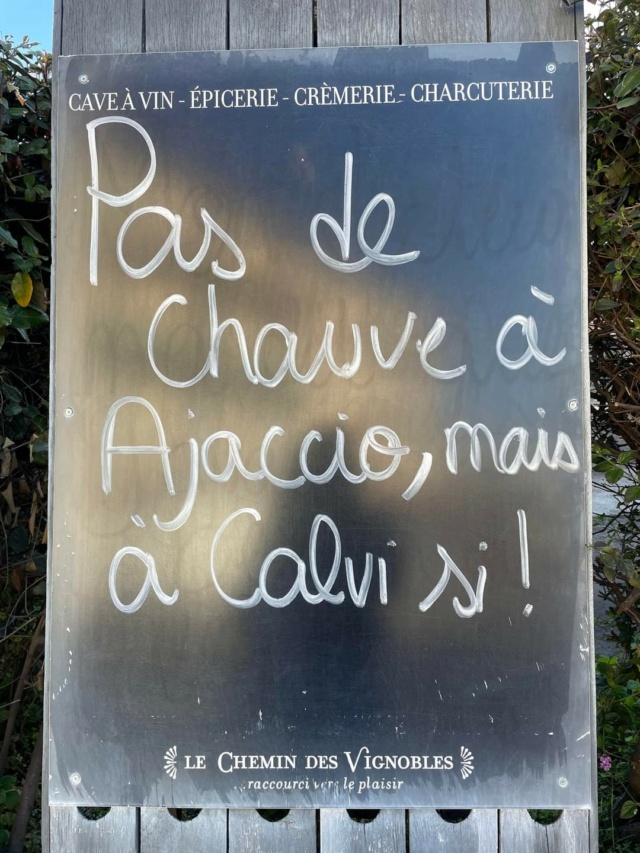 CAVE À VIN - ÉPICERIE - CRÈMERIE - CHARCUTERIE
Pas de
Chauve à
Ajaccio, mais
à Calvi si !
LE CHEMIN DES VIGNOBLES
...raccourci vers le plaisir